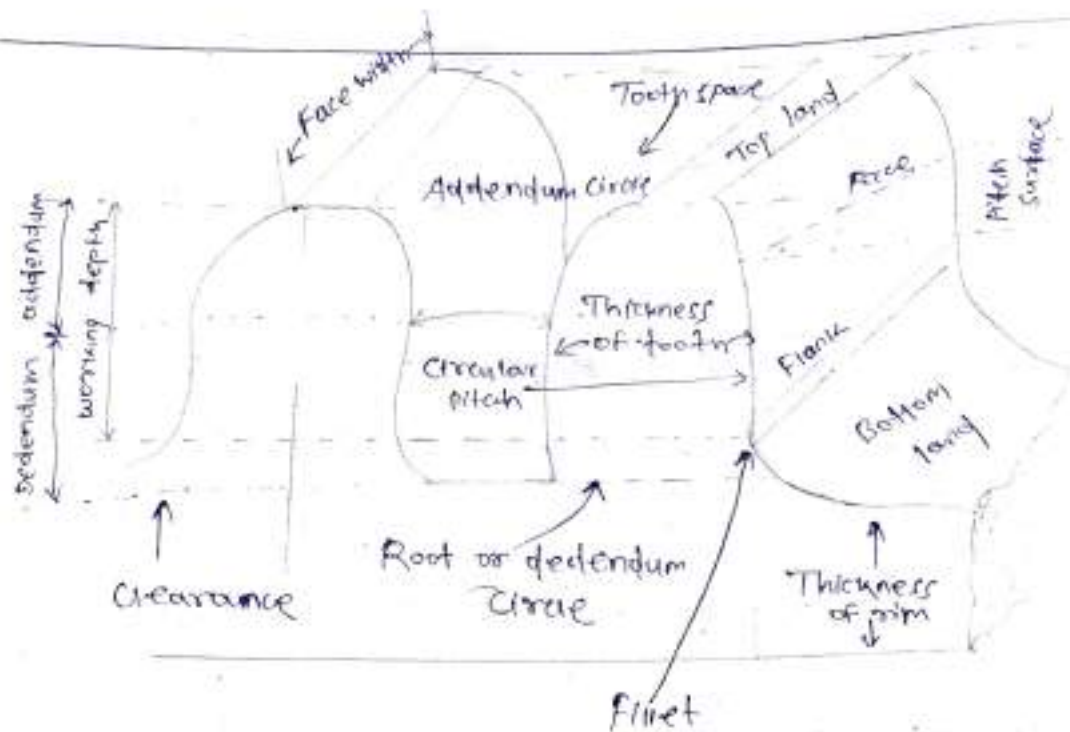 Face width
Tooth space
Top land
Addendum circle
Face
Pitch
surface
Dedendum addendum
working depth
Thickness
of tooth
Circular
pitch
Flank
Bottom
land
Root or dedendum
Circle
Clearance
Thickness
of rim
Fillet